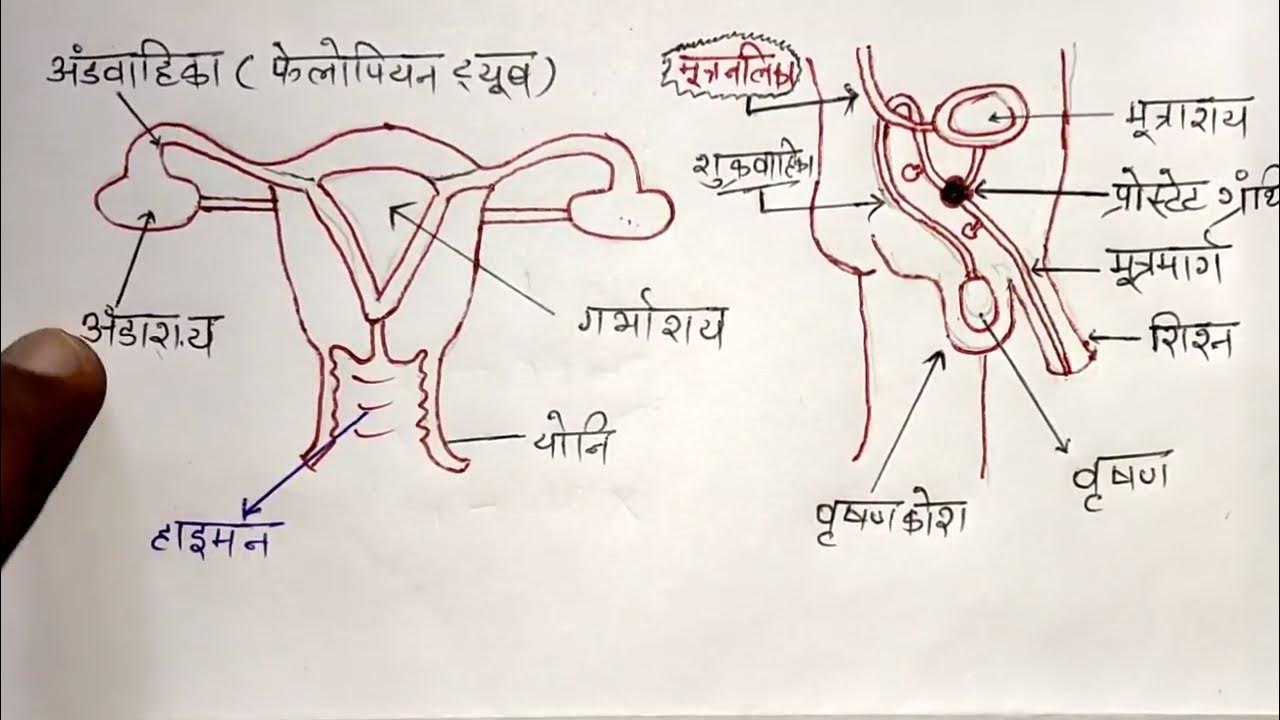 अंडवाहिका ( फेलोपियन ट्यूब )
अंडाशय
गर्भाशय
योनि
हाइमन
मूत्रनलिका
शुक्रवाहिका
मूत्राशय
प्रोस्टेट ग्रंथि
मूत्रमार्ग
शिश्न
वृषण
वृषणकोश